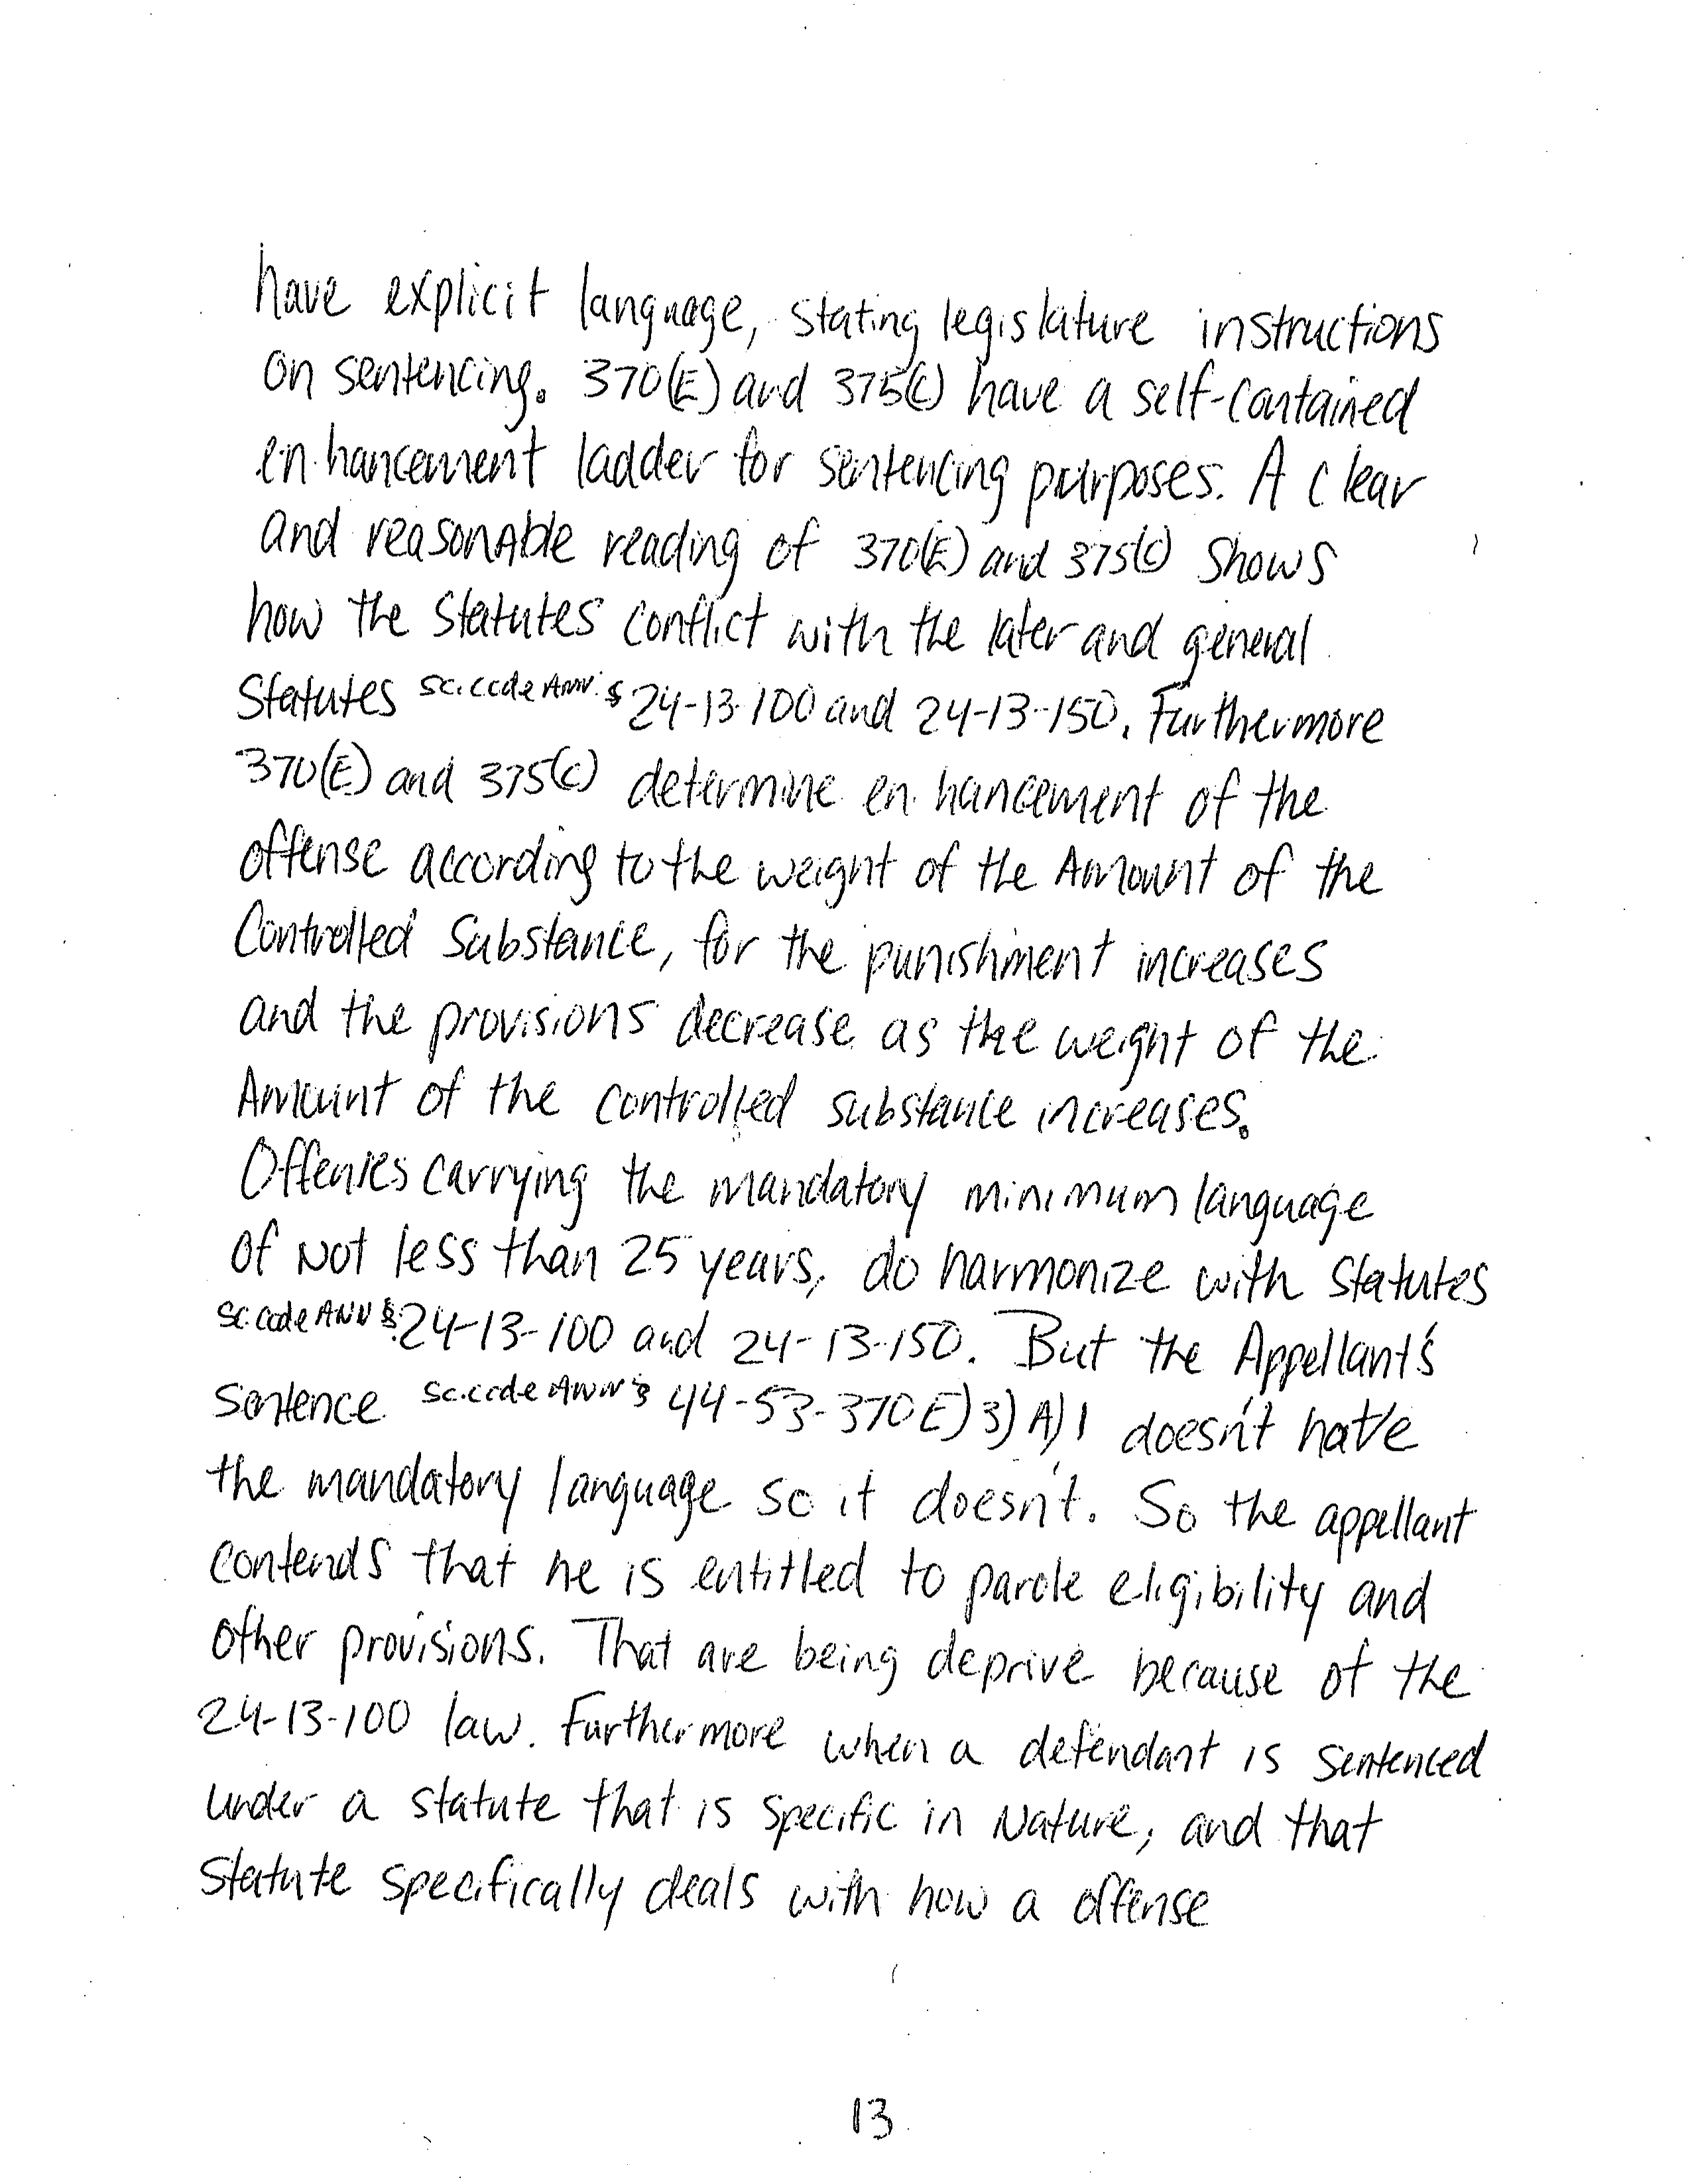 have explicit language, stating legislature instructions
on sentencing. 370(E) and 375(C) have a self-contained
enhancement ladder for sentencing purposes. A clear
and reasonable reading of 370(E) and 375(C) shows
how the statutes conflict with the later and general
statutes SC. Code Ann. § 24-13-100 and 24-13-150. Furthermore
370(E) and 375(C) determine enhancement of the
offense according to the weight of the Amount of the
Controlled Substance, for the punishment increases
and the provisions decrease as the weight of the
Amount of the controlled substance increases.
Offenses carrying the mandatory minimum language
of Not less than 25 years, do harmonize with statutes
SC. Code ANN §. 24-13-100 and 24-13-150. But the Appellant's
sentence SC. Code ANN § 44-53-370 E) 3) A) 1 doesn't have
the mandatory language so it doesn't. So the appellant
contends that he is entitled to parole eligibility and
other provisions. That are being deprive because of the
24-13-100 law. Furthermore when a defendant is sentenced
under a statute that is specific in Nature, and that
statute specifically deals with how a offense
13